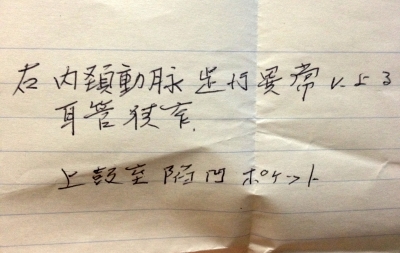 右内頚動脈走行異常による
耳管狭窄.
上鼓室陥凹ポケット